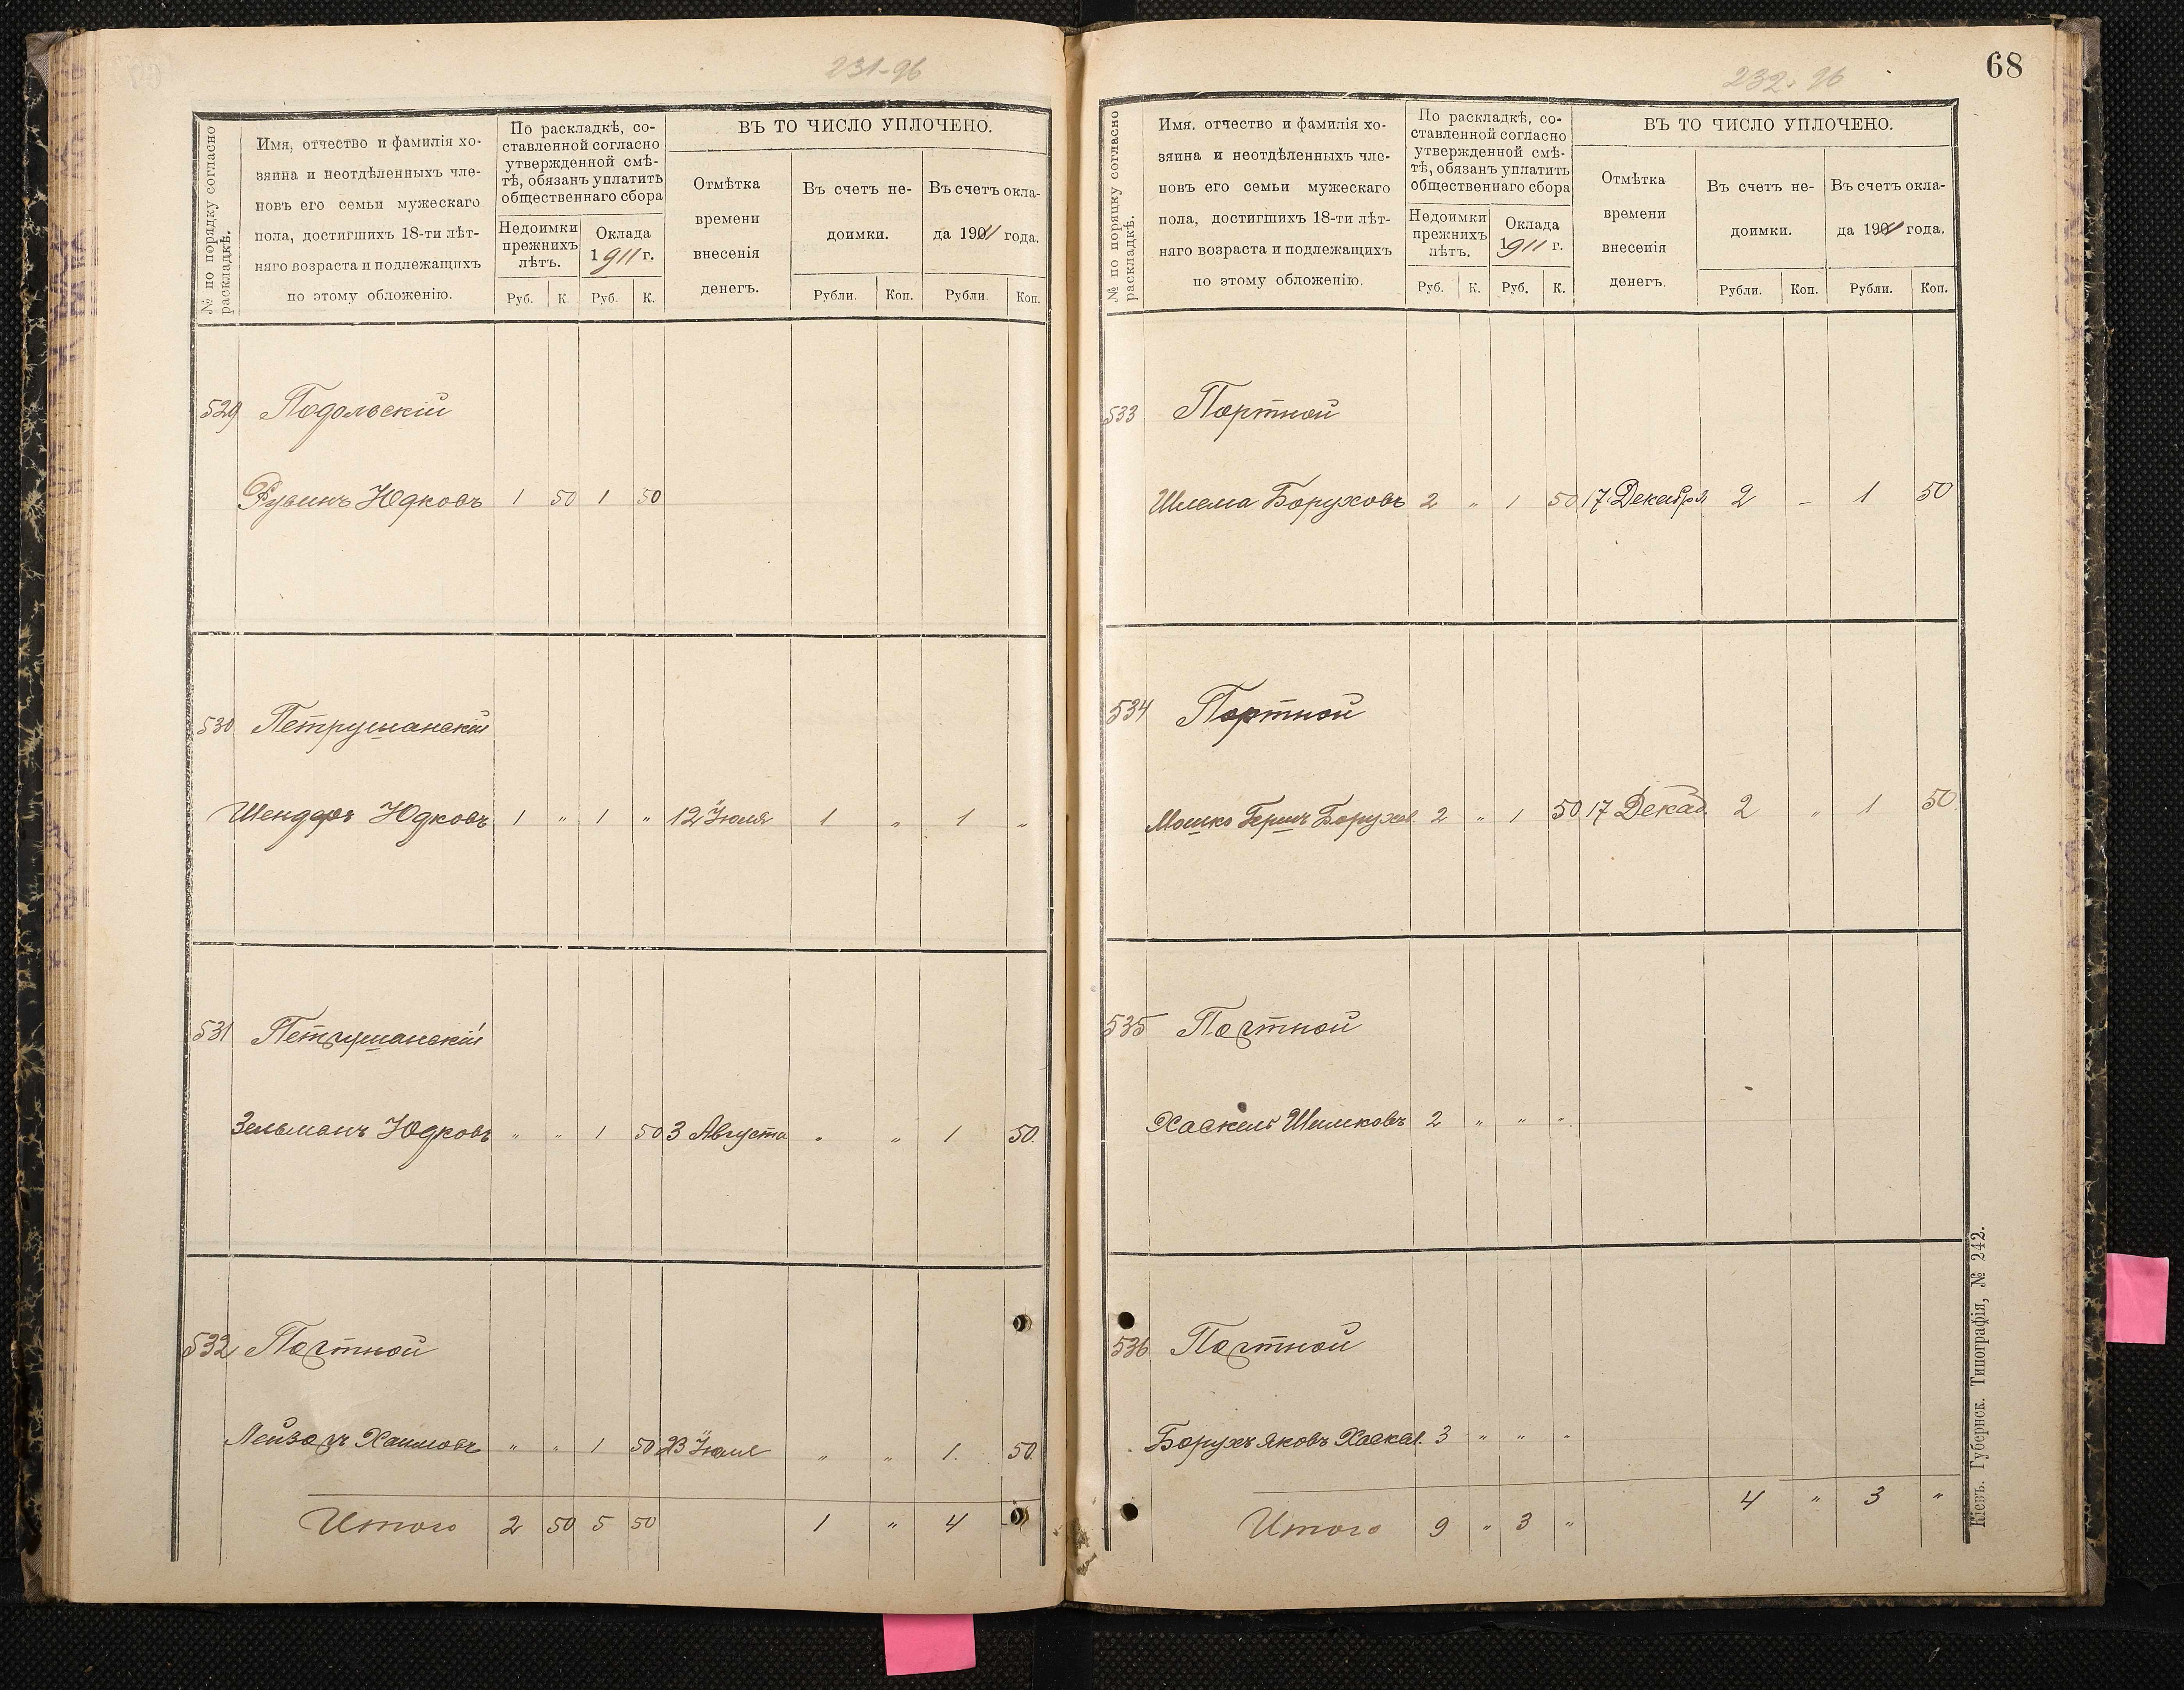 231-96
№ по порядку согласно раскладкѣ.
Имя, отчество и фамилія хо-
зяина и неотдѣленныхъ чле-
новъ его семьи мужескаго
пола, достигшихъ 18-ти лѣт-
няго возраста и подлежащихъ
по этому обложенію.
По раскладкѣ, со-
ставленной согласно
утвержденной смѣ-
тѣ, обязанъ уплатить
общественнаго сбора
Недоимки
прежнихъ
лѣтъ.
Оклада
1911 г.
ВЪ ТО ЧИСЛО УПЛОЧЕНО.
Отмѣтка
времени
внесенія
денегъ.
Въ счетъ не-
доимки.
Въ счетъ окла-
да 1911 года.
Руб. К. Руб. К. Рубли. Коп. Рубли. Коп.
529 Подольскій
Рувинъ Юдковъ 1 50 1 50
530 Петрушанскій
Шендеръ Юдковъ 1 " 1 " 12 Іюля 1 " 1 "
531 Петрушанскій
Зельманъ Юдковъ " " 1 50 3 Августа " " 1 50.
532 Портной
Лейзоръ Хаимовъ " " 1 50 23 Іюля " " 1. 50.
Итого 2 50 5 50 1 " 4
232-96
68
№ по порядку согласно раскладкѣ.
Имя. отчество и фамилія хо-
зяина и неотдѣленныхъ чле-
новъ его семьи мужескаго
пола, достигшихъ 18-ти лѣт-
няго возраста и подлежащихъ
по этому обложенію.
По раскладкѣ, со-
ставленной согласно
утвержденной смѣ-
тѣ, обязанъ уплатить
общественнаго сбора
Недоимки
прежнихъ
лѣтъ.
Оклада
1911 г.
ВЪ ТО ЧИСЛО УПЛОЧЕНО.
Отмѣтка
времени
внесенія
денегъ.
Въ счетъ не-
доимки.
Въ счетъ окла-
да 1911 года.
Руб. К. Руб. К. Рубли. Коп. Рубли. Коп.
533 Портной
Шлема Боруховъ 2 " 1 50 17 Декабря 2 – 1 50
534 Портной
Мошко Гершъ Борухов. 2 " 1 50 17 Декаб. 2 " 1 50
535 Портной
Хаскель Шлимковъ 2 " " "
536 Портной
Борухъ Яковъ Хаскел. 3 " " "
4 " 3 "
Итого 9 " 3 "
Кіевъ. Губернск. Типографія, № 242.